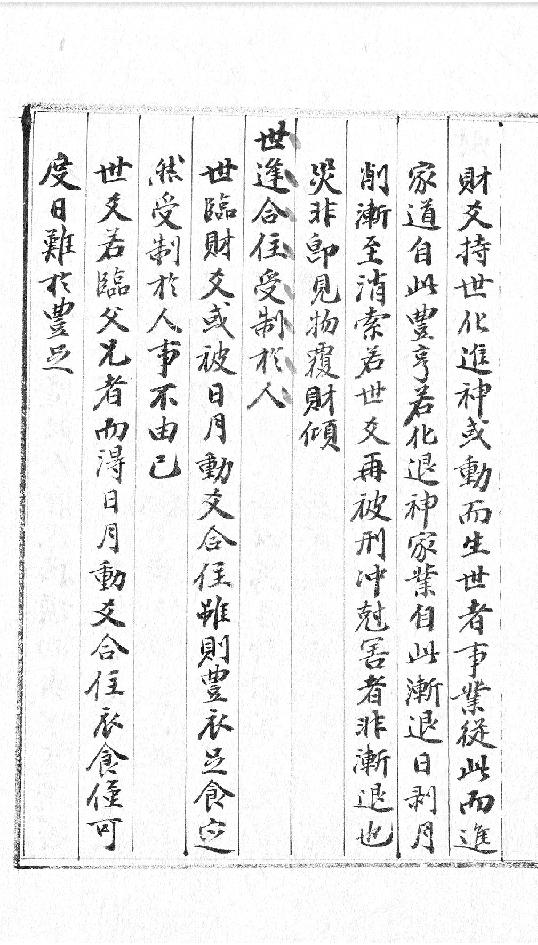 財爻持世化進神或動而生世者事業從此而進
家道自此豐亨若化退神家業自此漸退日剥月
削漸至消索若世爻再被刑冲尅害者非漸退也
災非即見物覆財傾
世逢合住受制於人
世臨財爻或被日月動爻合住雖則豐衣足食
然受制於人事不由己
世爻若臨父兄者而得日月動爻合住衣食僅可
度日難於豐足